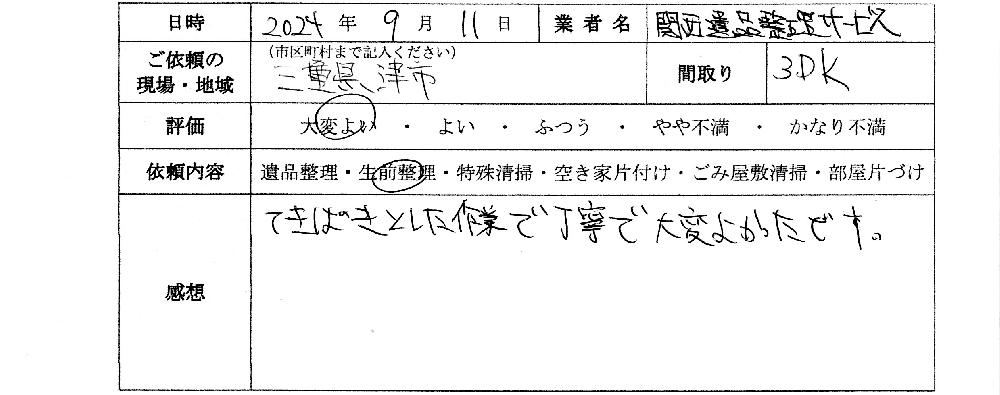 日時 2024 年 9 月 11 日 業者名 関西遺品整理サービス
ご依頼の現場・地域 (市区町村まで記入ください)
三重県津市 間取り 3DK
評価 大変よい ・ よい ・ ふつう ・ やや不満 ・ かなり不満
依頼内容 遺品整理・生前整理・特殊清掃・空き家片付け・ごみ屋敷清掃・部屋片づけ
感想 てきぱきとした作業で丁寧で大変よかったです。